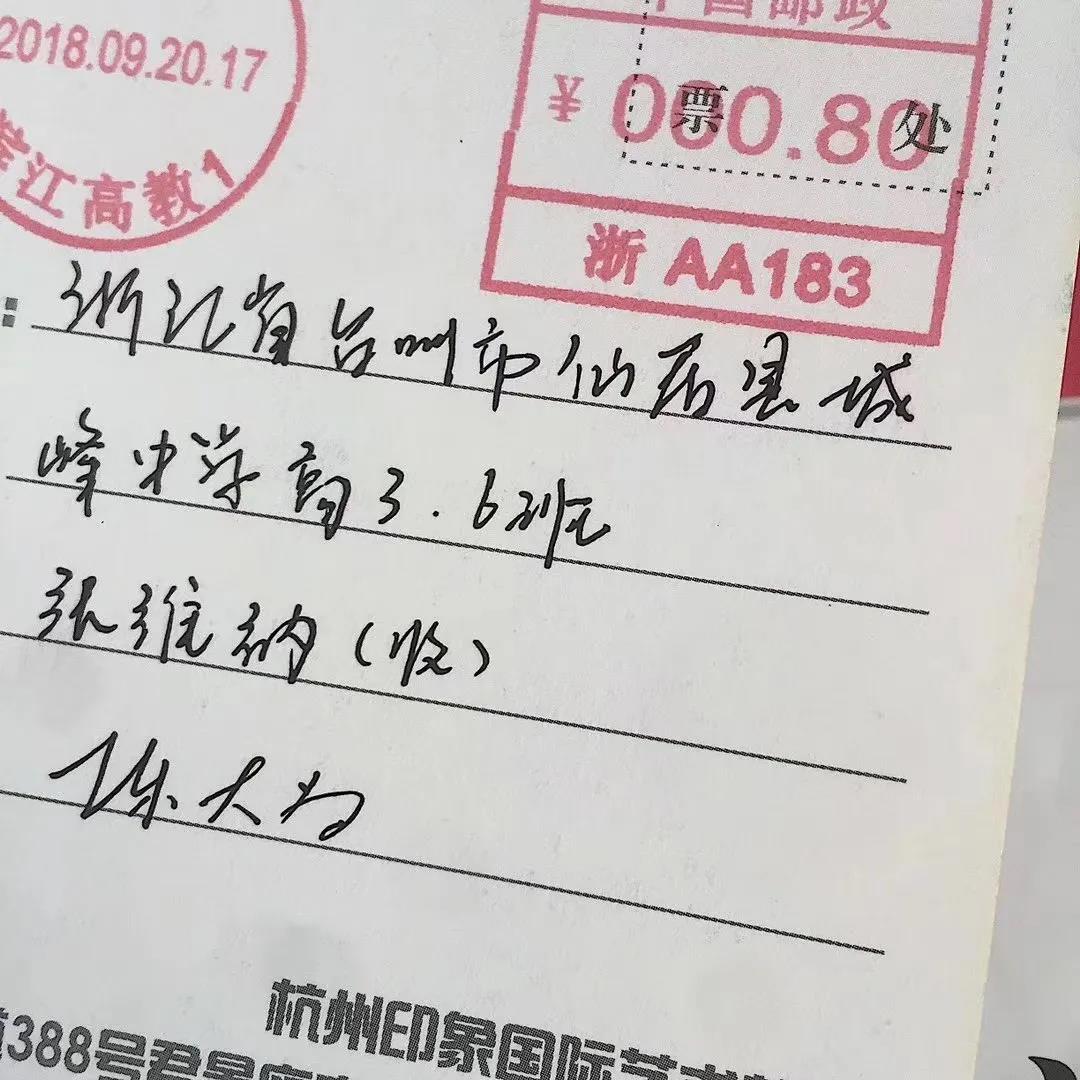 中国邮政
2018.09.20.17
¥ 000.80
票 处
江高教1
浙 AA183
浙江省台州市仙居县城
峰中学高3.6班
张维纳（收）
陈大为
杭州印象国际艺术
388号君